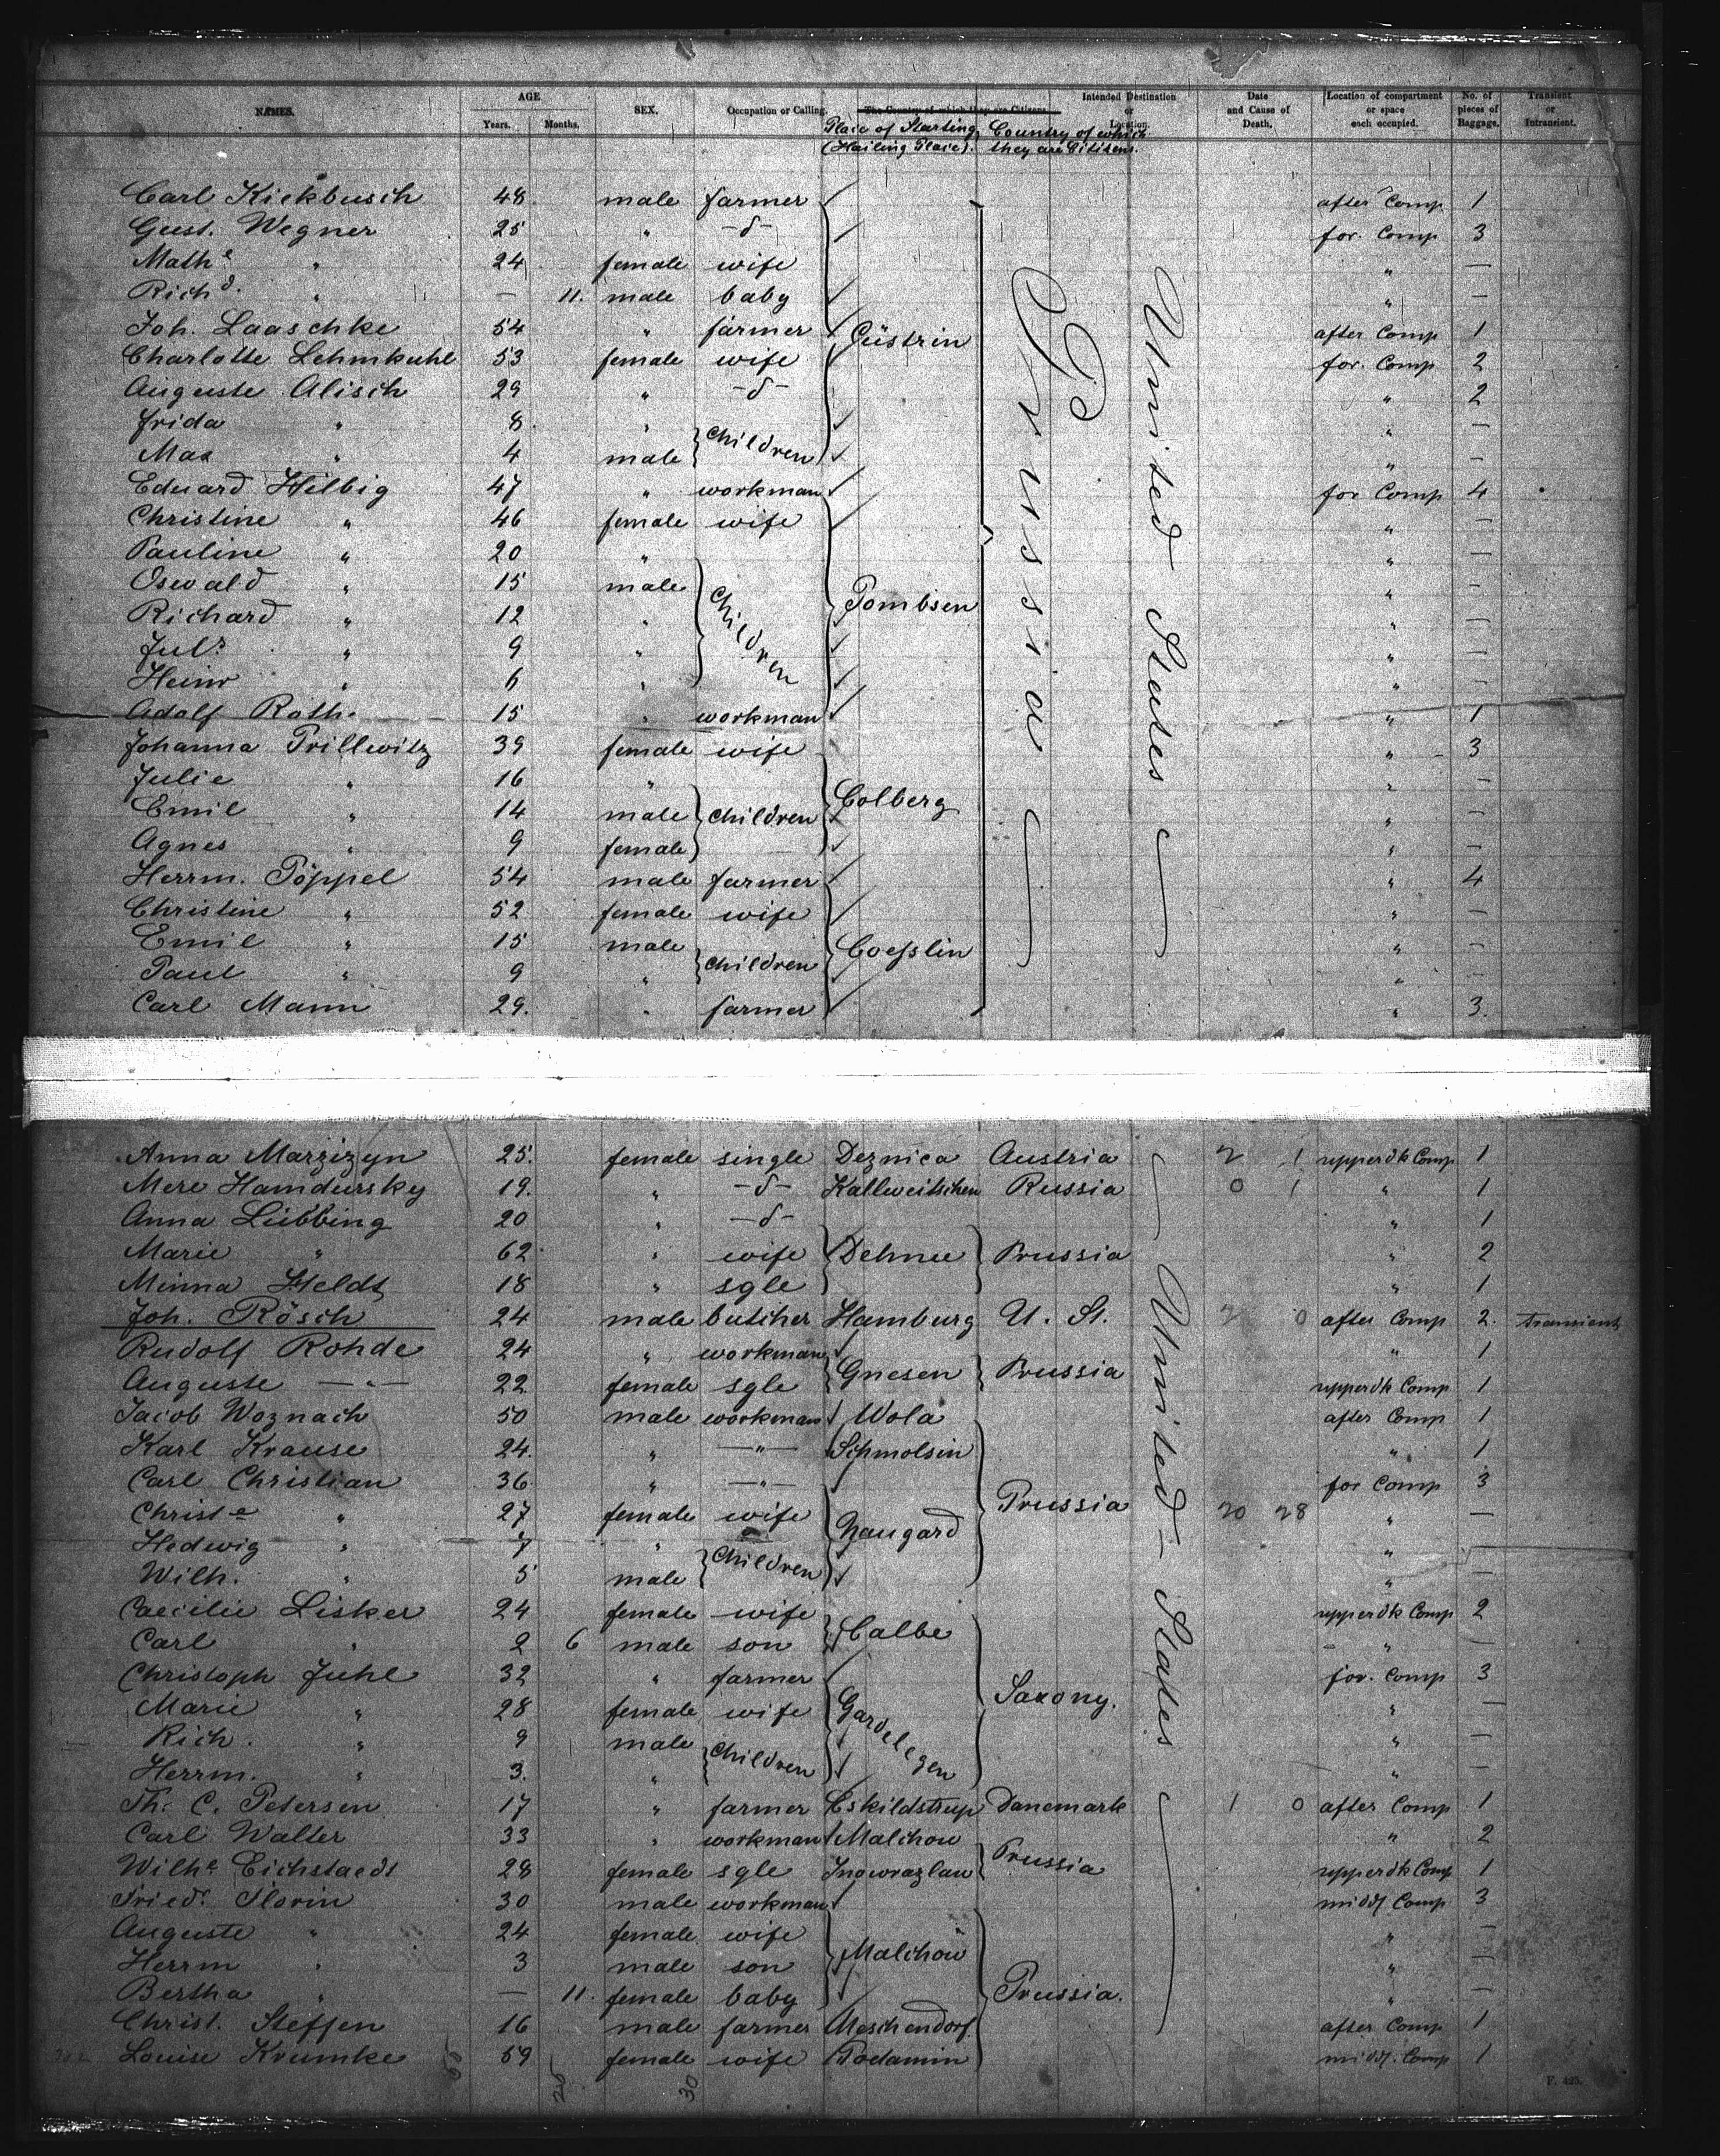 NAMES. AGE SEX. Occupation or Calling. The Country of which they are Citizens. Intended Destination or Location. Date and Cause of Death. Location of compartment or space each occupied. No. of pieces of Baggage. Transient or Intransient.
Years. Months. Place of Starting (Hailing Place). Country of which they are Citizens.
Carl Kickbusch 48 male farmer after Comp 1
Gust. Wegner 25 " -d- for. Comp 3
Mathe " 24 female wife " —
Richd. " — 11. male baby " —
Joh. Laaschke 54 " farmer Cüstrin after Comp 1
Charlotte Lehmkuhl 53 female wife for. Comp 2
Auguste Alisch 29 " -d- " 2
Frida " 8 " Children " —
Max " 4 male " —
Eduard Hilbig 47 " workman for Comp 4
Christine " 46 female wife " —
Pauline " 20 " " —
Oswald " 15 male Children " —
Richard " 12 " Pombsen " —
Juls " 9 " " —
Heinr " 6 " " —
Adolf Rath. 15 " workman " 1
Prussia United States
Johanna Prillwitz 39 female wife " 3
Julie " 16 " " —
Emil " 14 male Children Colberg " —
Agnes " 9 female " —
Herrm. Pöppel 54 male farmer " 4
Christine " 52 female wife " —
Emil " 15 male Children Coesslin " —
Paul " 9 " " —
Carl Mann 29. " farmer " 3.
Anna Marzizyn 25. female single Deznica Austria 2 1 upperdk Comp 1
Mere Hamdursky 19. " -d- Kallweitschen Russia 0 1 " 1
Anna Lübbing 20 " -d- " 1
Marie " 62 " wife Dehnee Prussia " 2
Minna Heldt 18 " sgle " 1
Joh. Rösch 24 male butcher Hamburg U. St. 2 0 after Comp 2. transient
Rudolf Rohde 24 " workman Gnesen Prussia " 1
Auguste —"— 22 female sgle upperdk Comp 1
Jacob Woznach 50 male workman Wola after Comp 1
Karl Krause 24. " —"— Schmolsin " 1
Carl Christian 36 " —"— for Comp 3
Christe " 27 female wife Naugard Prussia 20 28 " —
Hedwig " 7 " Children "
Wilh. " 5 male " —
United States
Caecilie Lisker 24 female wife Calbe upperdk Comp 2
Carl " 2 6 male son " —
Christoph Juhl 32 " farmer for. Comp 3
Marie " 28 female wife Gardelegen Saxony. " —
Rich. " 9 male Children " —
Herrm. " 3. " " —
Th. C. Petersen 17 " farmer Eskildstrup Danemark 1 0 after Comp 1
Carl Walter 33 " workman Malchow Prussia " 2
Wilhe Eichstaedt 28 female sgle Inowrazlaw upperdk Comp 1
Friedr. Florin 30 male workman middl Comp 3
Auguste " 24 female wife " —
Herrm " 3 male son Malchow " —
Bertha " — 11. female baby Prussia. " —
Christ. Steffen 16 male farmer Meschendorf after Comp 1
Louise Krumke 59 female wife Podamin middl. Comp 1
30
F. 425.